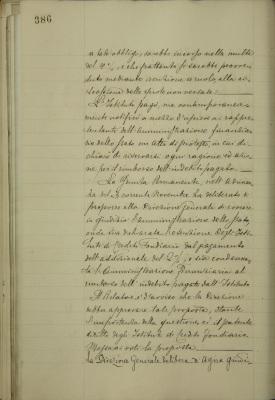 386
a tale obbligo, sarebbe incorso nella multa
del 2%, e che pertanto si sarebbe provve-
duto mediante iscrizione a ruolo, alla ri-
scossione delle quote non versate.
L'Istituto pagò, ma contemporanea-
mente notificò a mezzo d'usciere al rappre-
sentante dell'Amministrazione finanziaria
dello Stato un atto di protesta, in cui di-
chiarò di riservarsi ogni ragione ed azio-
ne per il rimborso dell'indebito pagato.
La Giunta Permanente, nell'adunan-
za del 3 corrente Novembre ha deliberato di
proporre alla Direzione Generale di convenire
in giudizio l'Amministrazione dello Stato,
onde sia dichiarata l'esenzione degli Isti-
tuti di Credito Fondiario dal pagamento
dell'addizionale del 2% e sia condannata
l'Amministrazione Finanziaria al
rimborso dell'indebito pagato dall'Istituto.
Il Relatore è d'avviso che la Direzione
debba approvare tale proposta, stante
l'importanza della questione, ed il
diritto degli Istituti di Credito Fondiario.
Messa ai voti la proposta
La Direzione Generale delibera di agire giudi-